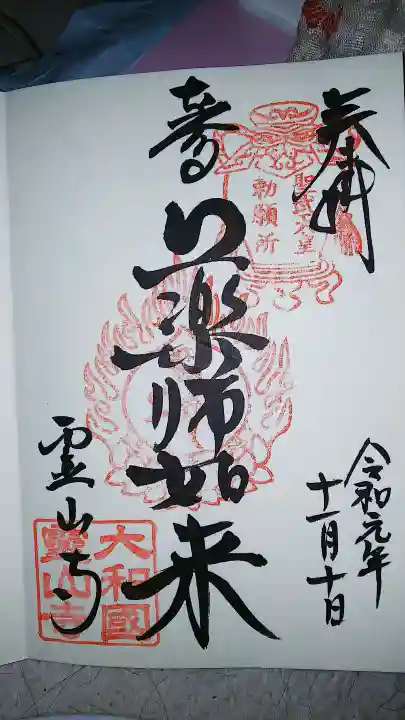 奉拝
聖武天皇
勅願所
令和元年
十一月十日
薬師如来
霊山寺
大和國
靈山寺